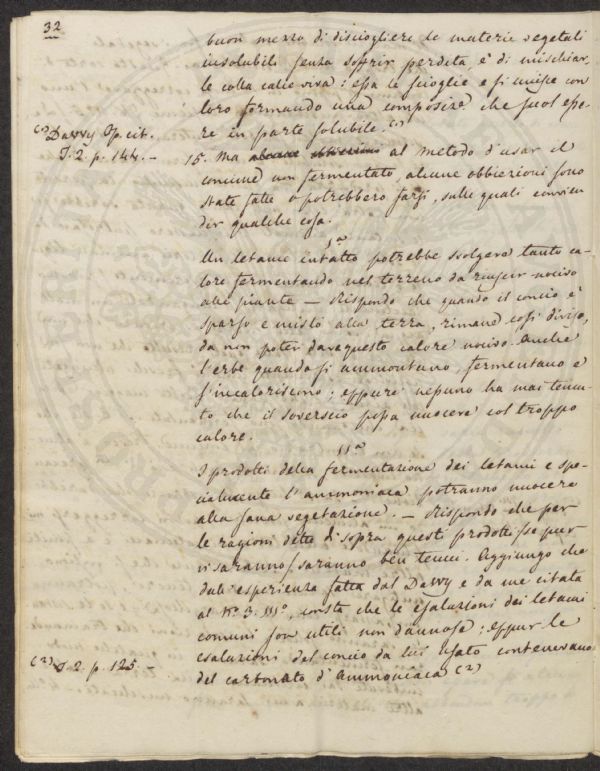 32
buon mezzo di disciogliere le materie vegetali
insolubili senza soffrir perdita è di mischiar-
le colla calce viva: essa le scioglie e si unisce con
loro formando una composizᵉ che suol esse-
re in parte solubile. (1)
(1) Davvy Op. cit.
T. 2. p. 144. –
15. Ma alcune obbiezioni al metodo d'usar il
concime non fermentato, alcune obbiezioni sono
state fatte o potrebbero farsi, sulle quali convien
dir qualche cosa.
1ª
Un letame intatto potrebbe svolgere tanto ca-
lore fermentando nel terreno da riuscir nocivo
alle piante — Rispondo che quando il concio è
sparso e misto alla terra, rimane così diviso,
da non poter dare questo calore nocivo. Anche
l'erbe quando si ammontano, fermentano e
s'incaloriscono; eppure nessuno ha mai temu-
to che il soverscio possa nuocere col troppo
calore.
IIª
I prodotti della fermentazione dei letami e spe-
cialmente l'ammoniaca potranno nuocere
alla sana vegetazione. — Rispondo che per
le ragioni dette di sopra questi prodotti (se pur
vi saranno) saranno ben tenui. Aggiungo che
dall'esperienza fatta dal Davvy e da me citata
al Nº 3. IIIº, consta che le esalazioni dei letami
comuni son utili non dannose; eppur le
esalazioni del concio da lui usato contenevano
del carbonato d'Ammoniaca (2)
(2) T. 2. p. 125. –